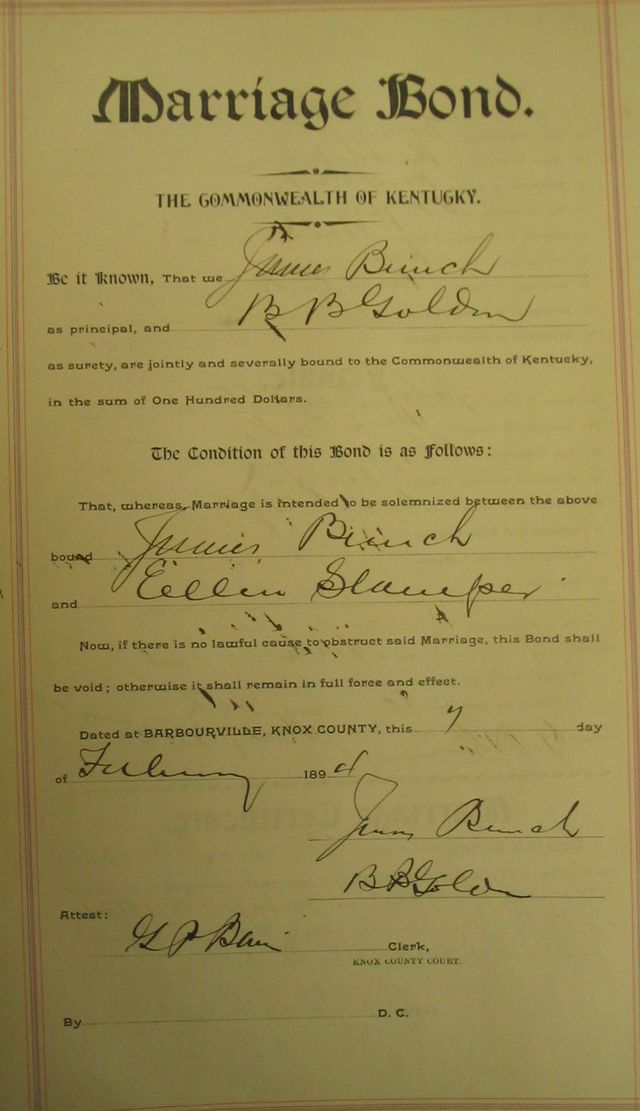 Marriage Bond.
THE COMMONWEALTH OF KENTUCKY.
Be it Known, That we James Bunch
as principal, and B B Golden
as surety, are jointly and severally bound to the Commonwealth of Kentucky,
in the sum of One Hundred Dollars.
The Condition of this Bond is as Follows:
That, whereas, Marriage is intended to be solemnized between the above
bound James Bunch
and Ellen Stamper
Now, if there is no lawful cause to obstruct said Marriage, this Bond shall
be void; otherwise it shall remain in full force and effect.
Dated at BARBOURVILLE, KNOX COUNTY, this 7 day
of February 1894
James Bunch
B B Golden
Attest:
G P Bain Clerk,
KNOX COUNTY COURT.
By D. C.